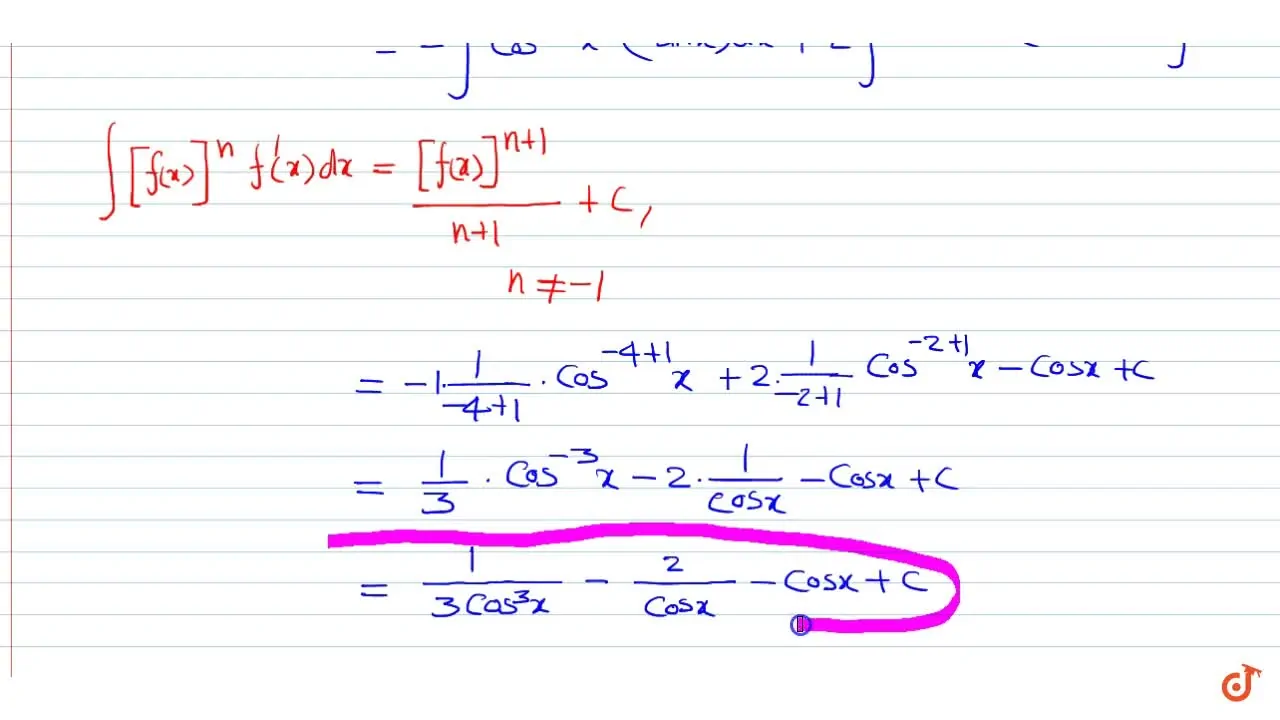 ∫[f(x)]^n f'(x)dx = [f(x)]^{n+1}/(n+1) + C,
n ≠ -1
= -1·1/(-4+1) · Cos^{-4+1}x + 2·1/(-2+1) Cos^{-2+1}x - Cosx + C
= 1/3 · Cos^{-3}x - 2·1/Cosx - Cosx + C
= 1/(3Cos³x) - 2/Cosx - Cosx + C